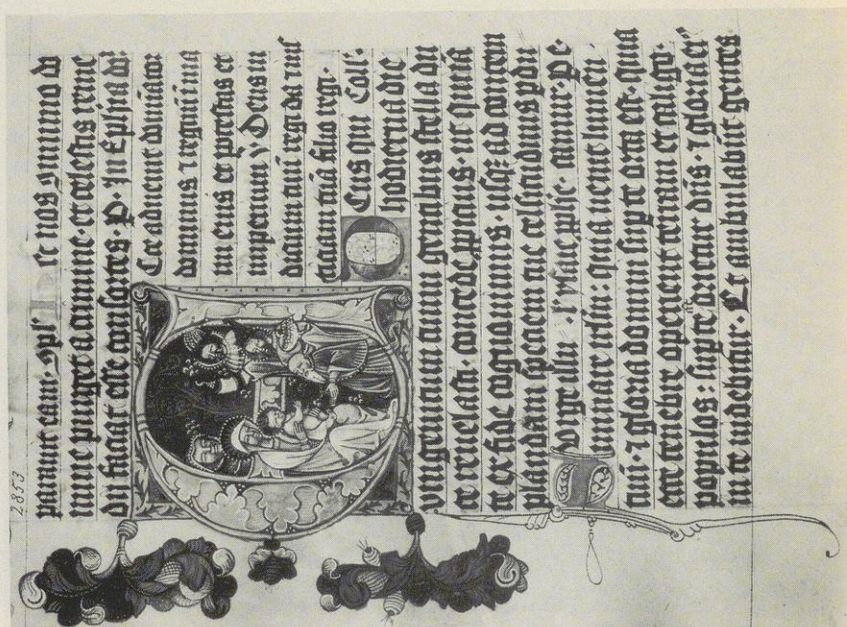 2853
et nos
nunc purget a crimine. et celestis reme
dij faciat esse consortes. P. In Ephia dni
Cce advenit dominator
dominus z regnū i ma
nu eius et potestas et
imperium y Deus iu
dicium tuū regi da z ius
ticiam tuā filio regis.
DEus qui Coll'.
hodierna die
unigenitum tuum gentibus stella du
ce revelasti. concede ppicius. ut qui iā
te ex fide cognovimus. usq; ad contem
plandam speciem tue celsitudinis pdu
Surge illu. camur. pe
minare irlm: quia venit lumen
tuū. z gloria domini sup te orta est. quia
ecce tenebre operient terram et caligo.
populos: sup te orietur dns. z gloria ei
in te videbitur. Et ambulabūt gentes.